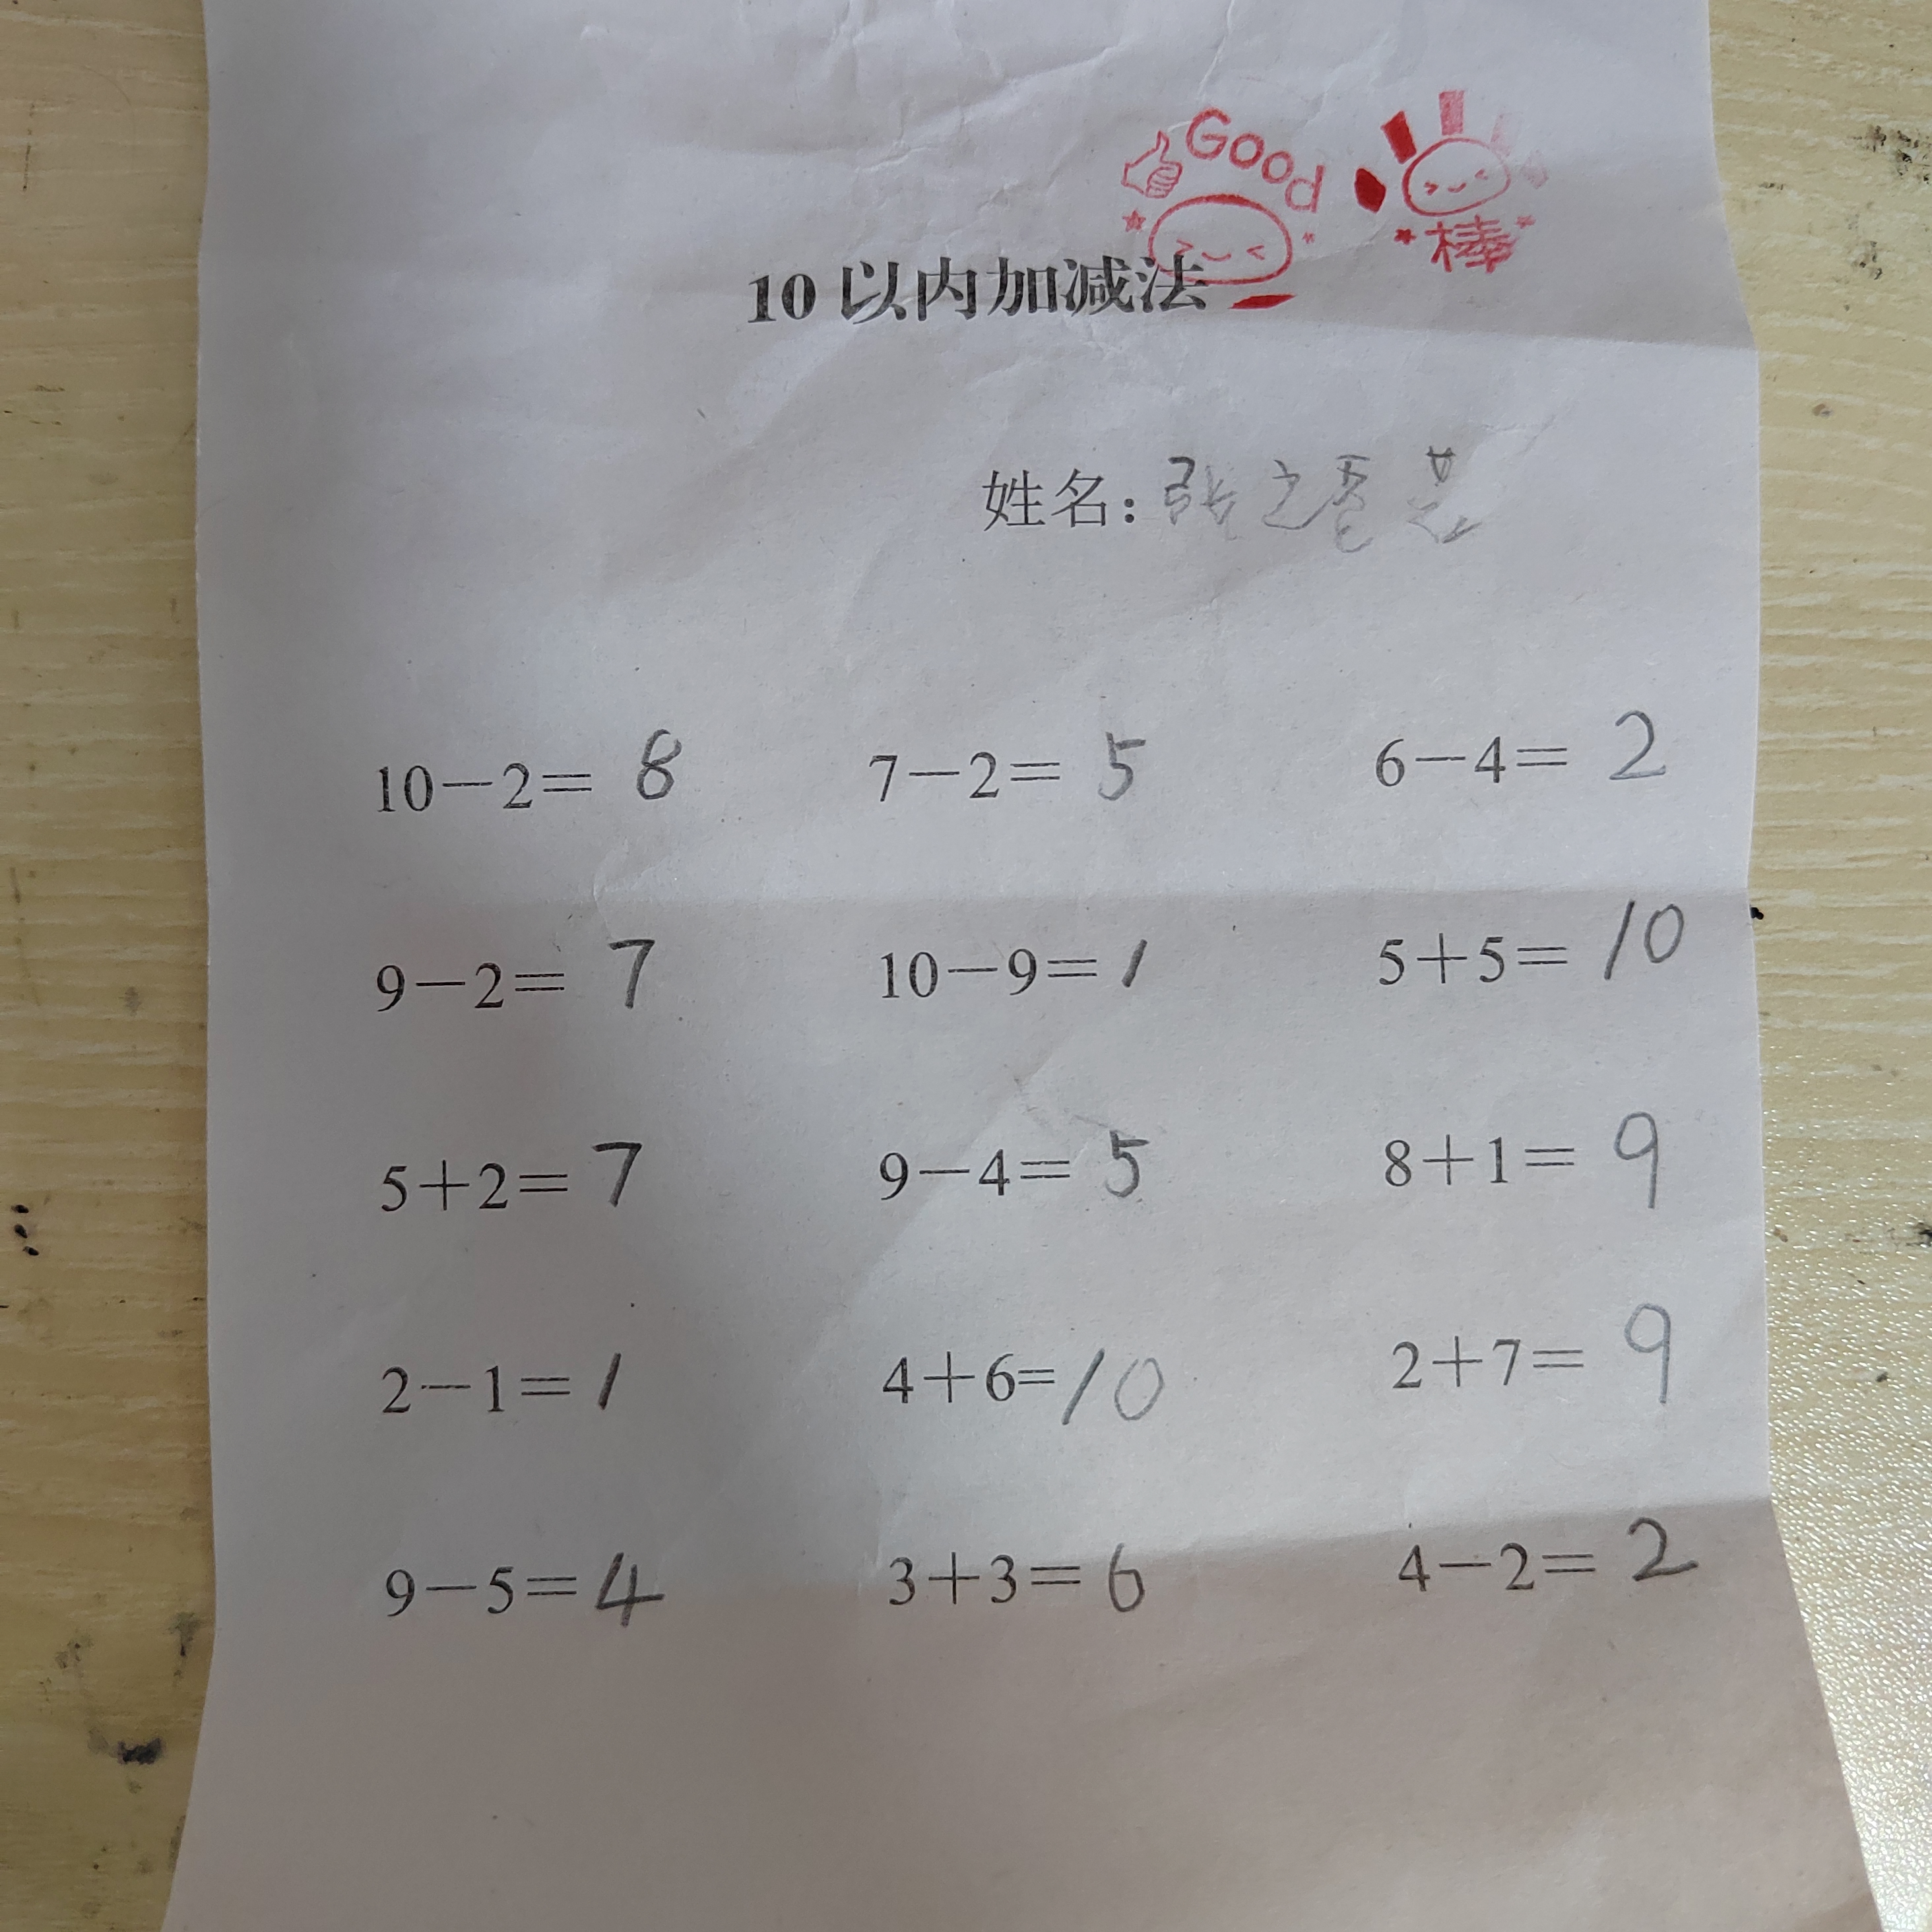 Good
棒
10以内加减法
姓名：张
10－2＝ 8 7－2＝ 5 6－4＝ 2
9－2＝ 7 10－9＝ 1 5＋5＝ 10
5＋2＝ 7 9－4＝ 5 8＋1＝ 9
2－1＝ 1 4＋6= 10 2＋7＝ 9
9－5＝ 4 3＋3＝ 6 4－2＝ 2